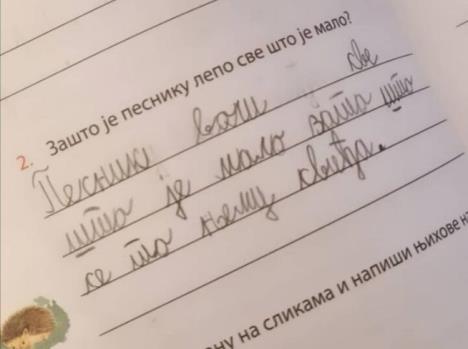 2. Зашто је песнику лепо све што је мало?
Песник воли је све
што је мало зато што
се то њему свиђа.
ну на сликама и напиши њихове н